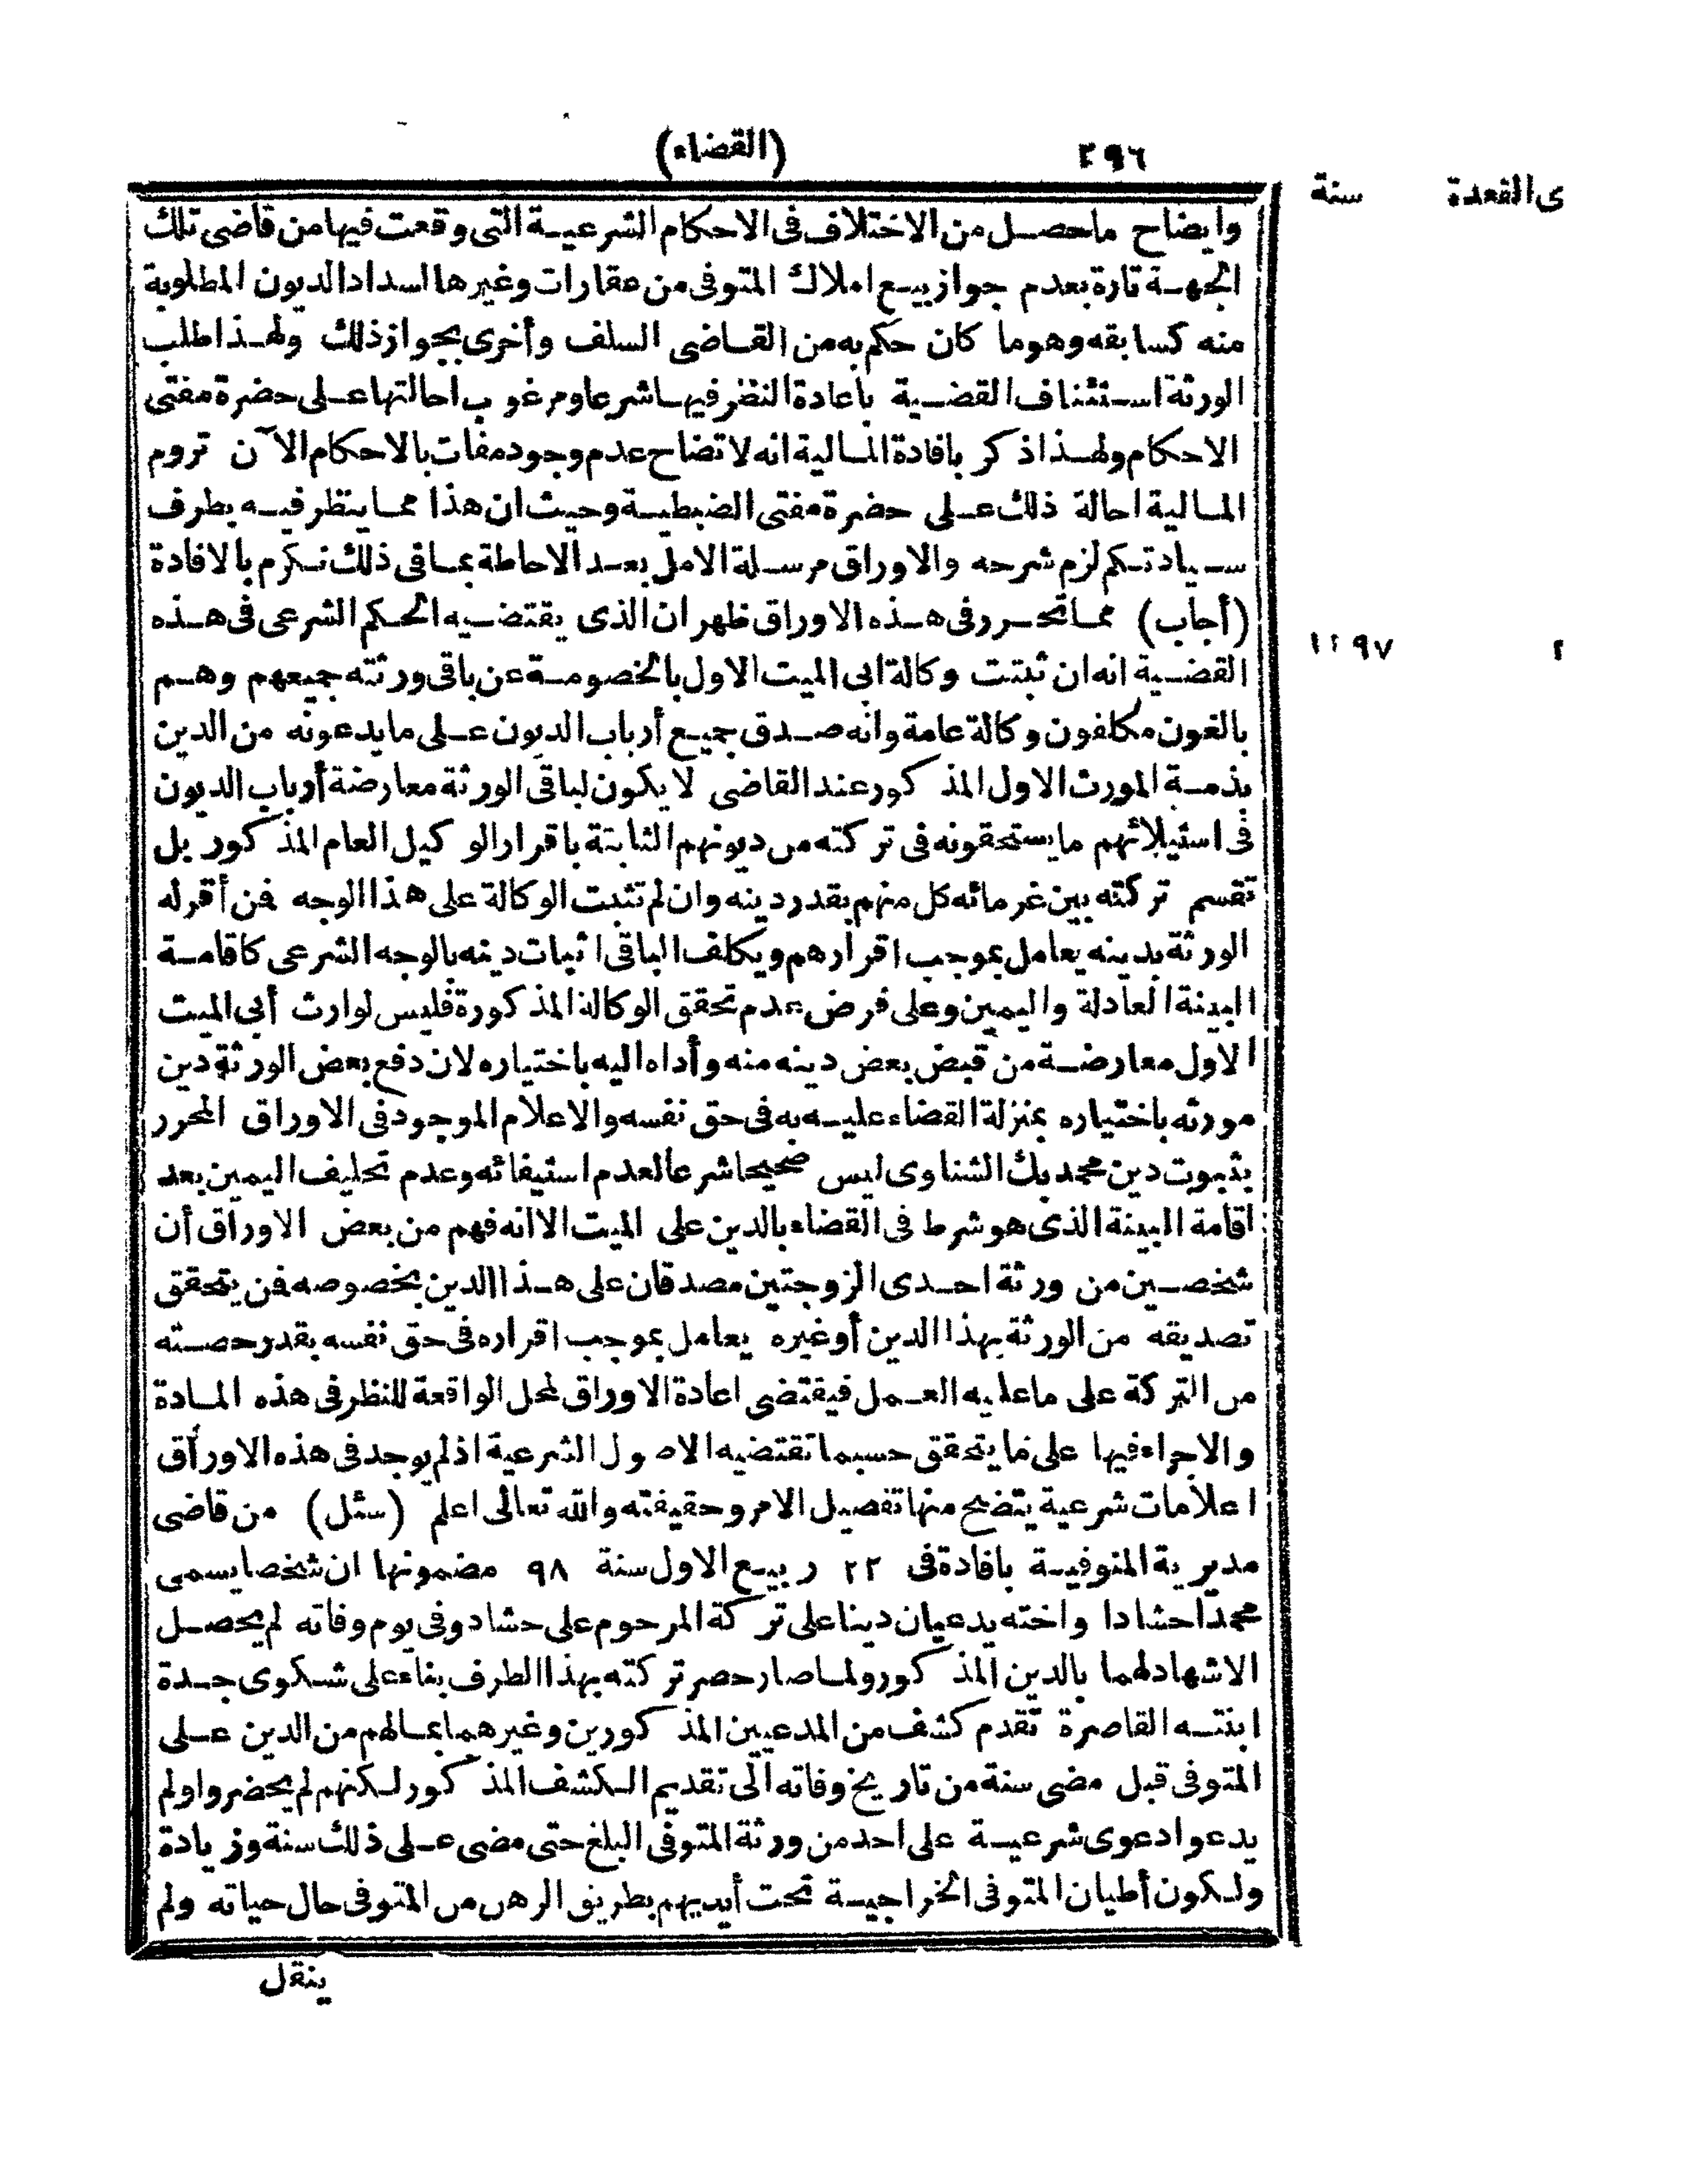 ٢٩٦
(القضاء)
ى القعدة سنة
وايضاح ماحصل من الاختلاف فى الاحكام الشرعية التى وقعت فيها من قاضى تلك
الجهة تارة بعدم جواز بيع املاك المتوفى من عقارات وغيرها لسداد الديون المطلوبة
منه كسابقه وهو ما كان حكم به من القاضى السلف وأخرى بجواز ذلك ولهذا طلب
الورثة استئناف القضية باعادة النظر فيها شرعا ومرغوب احالتها على حضرة مفتى
الاحكام ولهذا ذكر بافادة المالية انه لاتضاح عدم وجود مفات بالاحكام الآن تروم
المالية احالة ذلك على حضرة مفتى الضبطية وحيث ان هذا مما ينظر فيه بطرف
سيادتكم لزم شرحه والاوراق مرسلة الامل بعد الاحاطة بما فى ذلك نكرم بالافادة
(أجاب) مما تحرر فى هذه الاوراق ظهر ان الذى يقتضيه الحكم الشرعى فى هذه
٢ ١٢٩٧
القضية انه ان ثبتت وكالة ابى الميت الاول بالخصومة عن باقى ورثته جميعهم وهم
بالغون مكلفون وكالة عامة وانه صدق جميع أرباب الديون على ما يدعونه من الدين
بذمة المورث الاول المذكور عند القاضى لا يكون لباقى الورثة معارضة أرباب الديون
فى استيلائهم ما يستحقونه فى تركته من ديونهم الثابتة باقرار الوكيل العام المذكور بل
تقسم تركته بين غرمائه كل منهم بقدر دينه وان لم تثبت الوكالة على هذا الوجه فمن أقر له
الورثة بدينه يعامل بموجب اقرارهم ويكلف الباقى اثبات دينه بالوجه الشرعى كاقامة
البينة العادلة واليمين وعلى فرض عدم تحقق الوكالة المذكورة فليس لوارث أبى الميت
الاول معارضة من قبض بعض دينه منه وأداه اليه باختياره لان دفع بعض الورثة دين
مورثه باختياره بمنزلة القضاء عليه به فى حق نفسه والاعلام الموجود فى الاوراق المحرر
بثبوت دين محمد بك الشناوى ليس صحيحا شرعا لعدم استيفائه وعدم تحليف اليمين بعد
اقامة البينة الذى هو شرط فى القضاء بالدين على الميت الا انه فهم من بعض الاوراق أن
شخصين من ورثة احدى الزوجتين مصدقان على هذا الدين بخصوصه فمن يتحقق
تصديقه من الورثة بهذا الدين أو غيره يعامل بموجب اقراره فى حق نفسه بقدر حصته
من التركة على ما عليه العمل فيقتضى اعادة الاوراق لمحل الواقعة للنظر فى هذه المادة
والاجراء فيها على ما يتحقق حسبما تقتضيه الاصول الشرعية اذ لم يوجد فى هذه الاوراق
اعلامات شرعية يتضح منها تفصيل الامر وحقيقته والله تعالى اعلم (سئل) من قاضى
مديرية المنوفية بافادة فى ٢٢ ربيع الاول سنة ٩٨ مضمونها ان شخصا يسمى
محمدا حشادا واخته يدعيان دينا على تركة المرحوم على حشاد وفى يوم وفاته لم يحصل
الاشهاد لهما بالدين المذكور ولما صار حصر تركته بهذا الطرف بناء على شكوى جدة
ابنته القاصرة تقدم كشف من المدعيين المذكورين وغيرهما بمالهم من الدين على
المتوفى قبل مضى سنة من تاريخ وفاته الى تقديم الكشف المذكور لكنهم لم يحضروا ولم
يدعوا دعوى شرعية على احد من ورثة المتوفى البلغ حتى مضى على ذلك سنة وزيادة
ولكون أطيان المتوفى الخراجية تحت أيديهم بطريق الرهن من المتوفى حال حياته ولم
ينقل